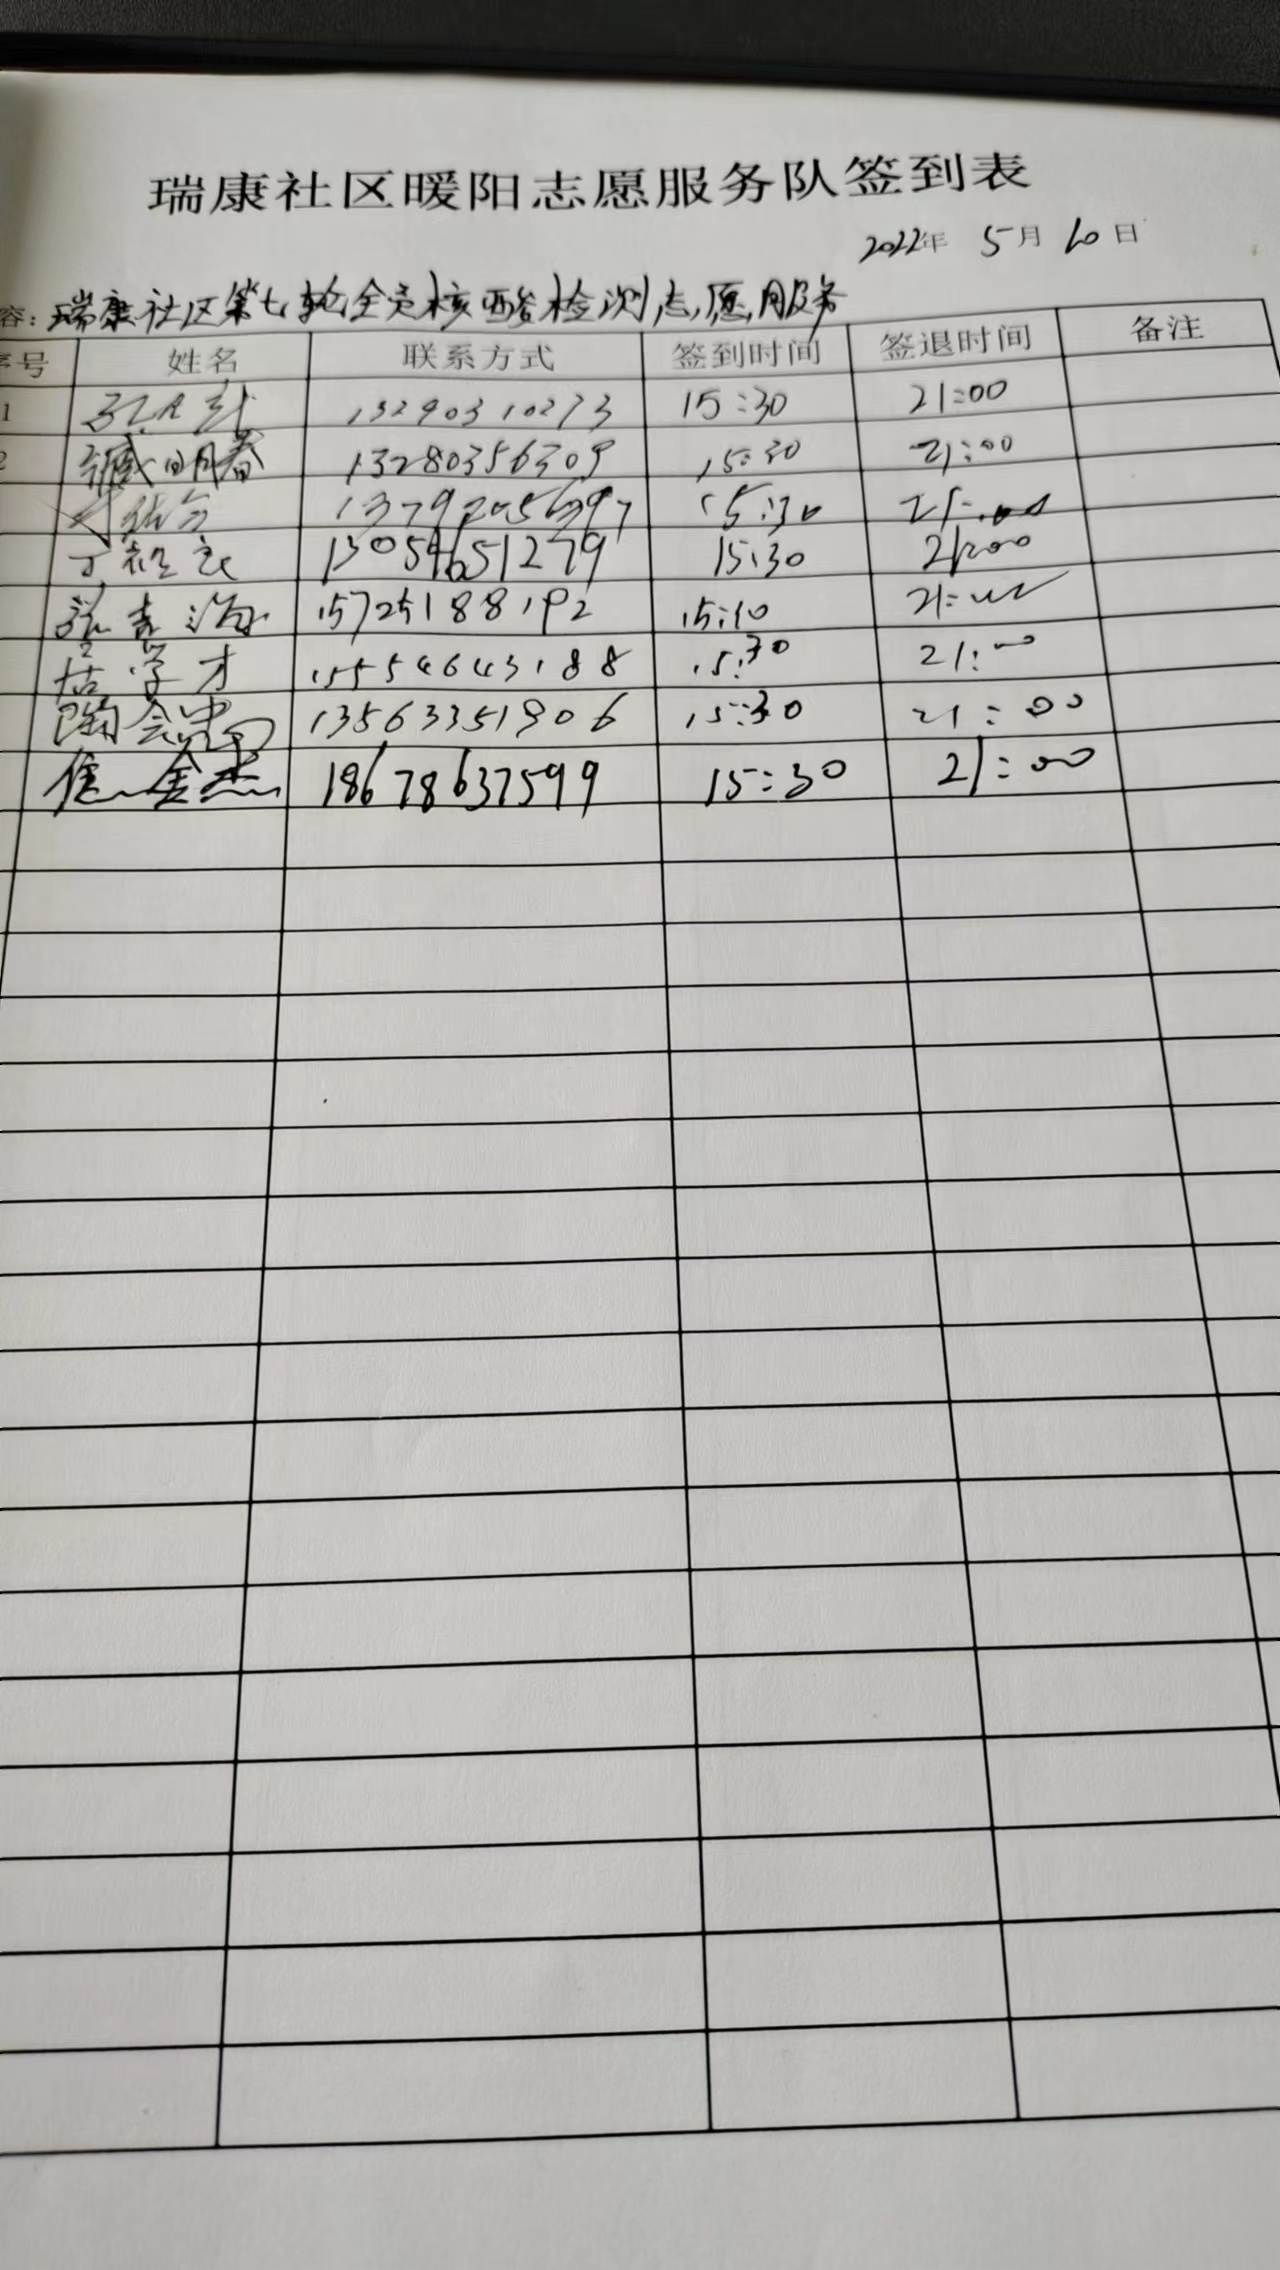 瑞康社区暖阳志愿服务队签到表
2022年 5月10日
容：瑞康社区第七轮全员核酸检测志愿服务
序号 姓名 联系方式 签到时间 签退时间 备注
1 13290310273 15:30 21:00
2 臧明春 13280356309 15:30 21:00
13792056397 15:30 21:00
丁 13054651279 15:30 21:00
15725188192 15:10 21:00
学才 15554643188 15:30 21:00
陶会忠 13563351906 15:30 21:00
焦金杰 18678637599 15:30 21:00